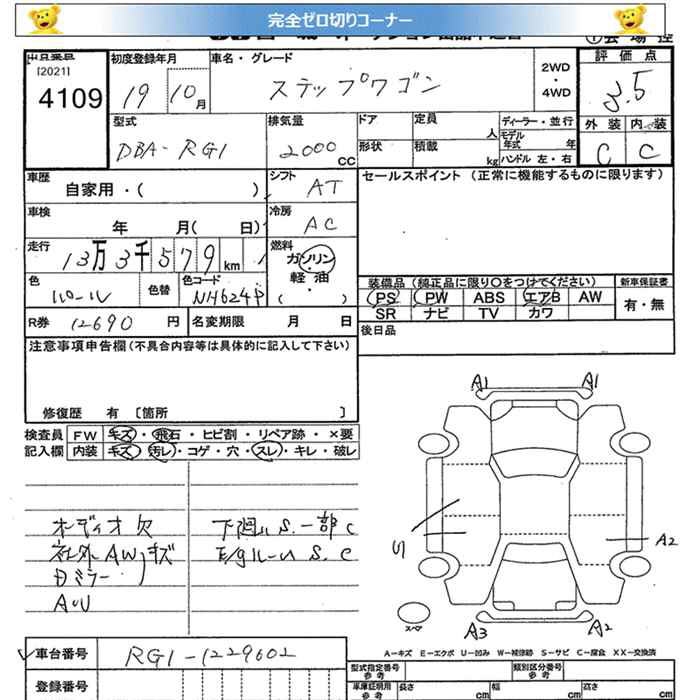 完全ゼロ切りコーナー
[2021]
4109
初度登録年月
19 10月
車名・グレード
ステップワゴン
2WD
・
4WD
評価点
3.5
型式
DBA-RG1
排気量
2000
CC
ドア
形状
定員
人
積載
kg
ディーラー・並行
モデル
年式 年
ハンドル 左・右
外装 内装
C C
車歴
自家用・( )
シフト
AT
車検
年 月( 日)
冷房
AC
走行
13万3千579km
燃料
ガソリン
・
軽油
( )
色
パール
色替
色コード
NH624P
R券 12690 円
名変期限 月 日
セールスポイント (正常に機能するものに限ります)
装備品(純正品に限り○をつけてください)
PS PW ABS エアB AW
SR ナビ TV カワ
新車保証書
有・無
後日品
注意事項申告欄(不具合内容等は具体的に記入して下さい)
修復歴 有 〔箇所 〕
検査員
記入欄
FW キズ・飛石・ヒビ割・リペア跡・×要
内装 キズ・汚レ・コゲ・穴・スレ・キレ・破レ
オーディオ欠
社外AWキズ
Dミラー〃
AU
下廻りS.一部C
E/gルームS.C
A1 A1
U
A2
スペア
A3 A2
車台番号 RG1-1229602
登録番号
A-キズ E-エクボ U-凹み W-補修跡 S-サビ C-腐食 XX-交換済
型式指定番号
参考
類別区分番号
参考
車庫証明用
参考
長さ cm
幅 cm
高さ cm